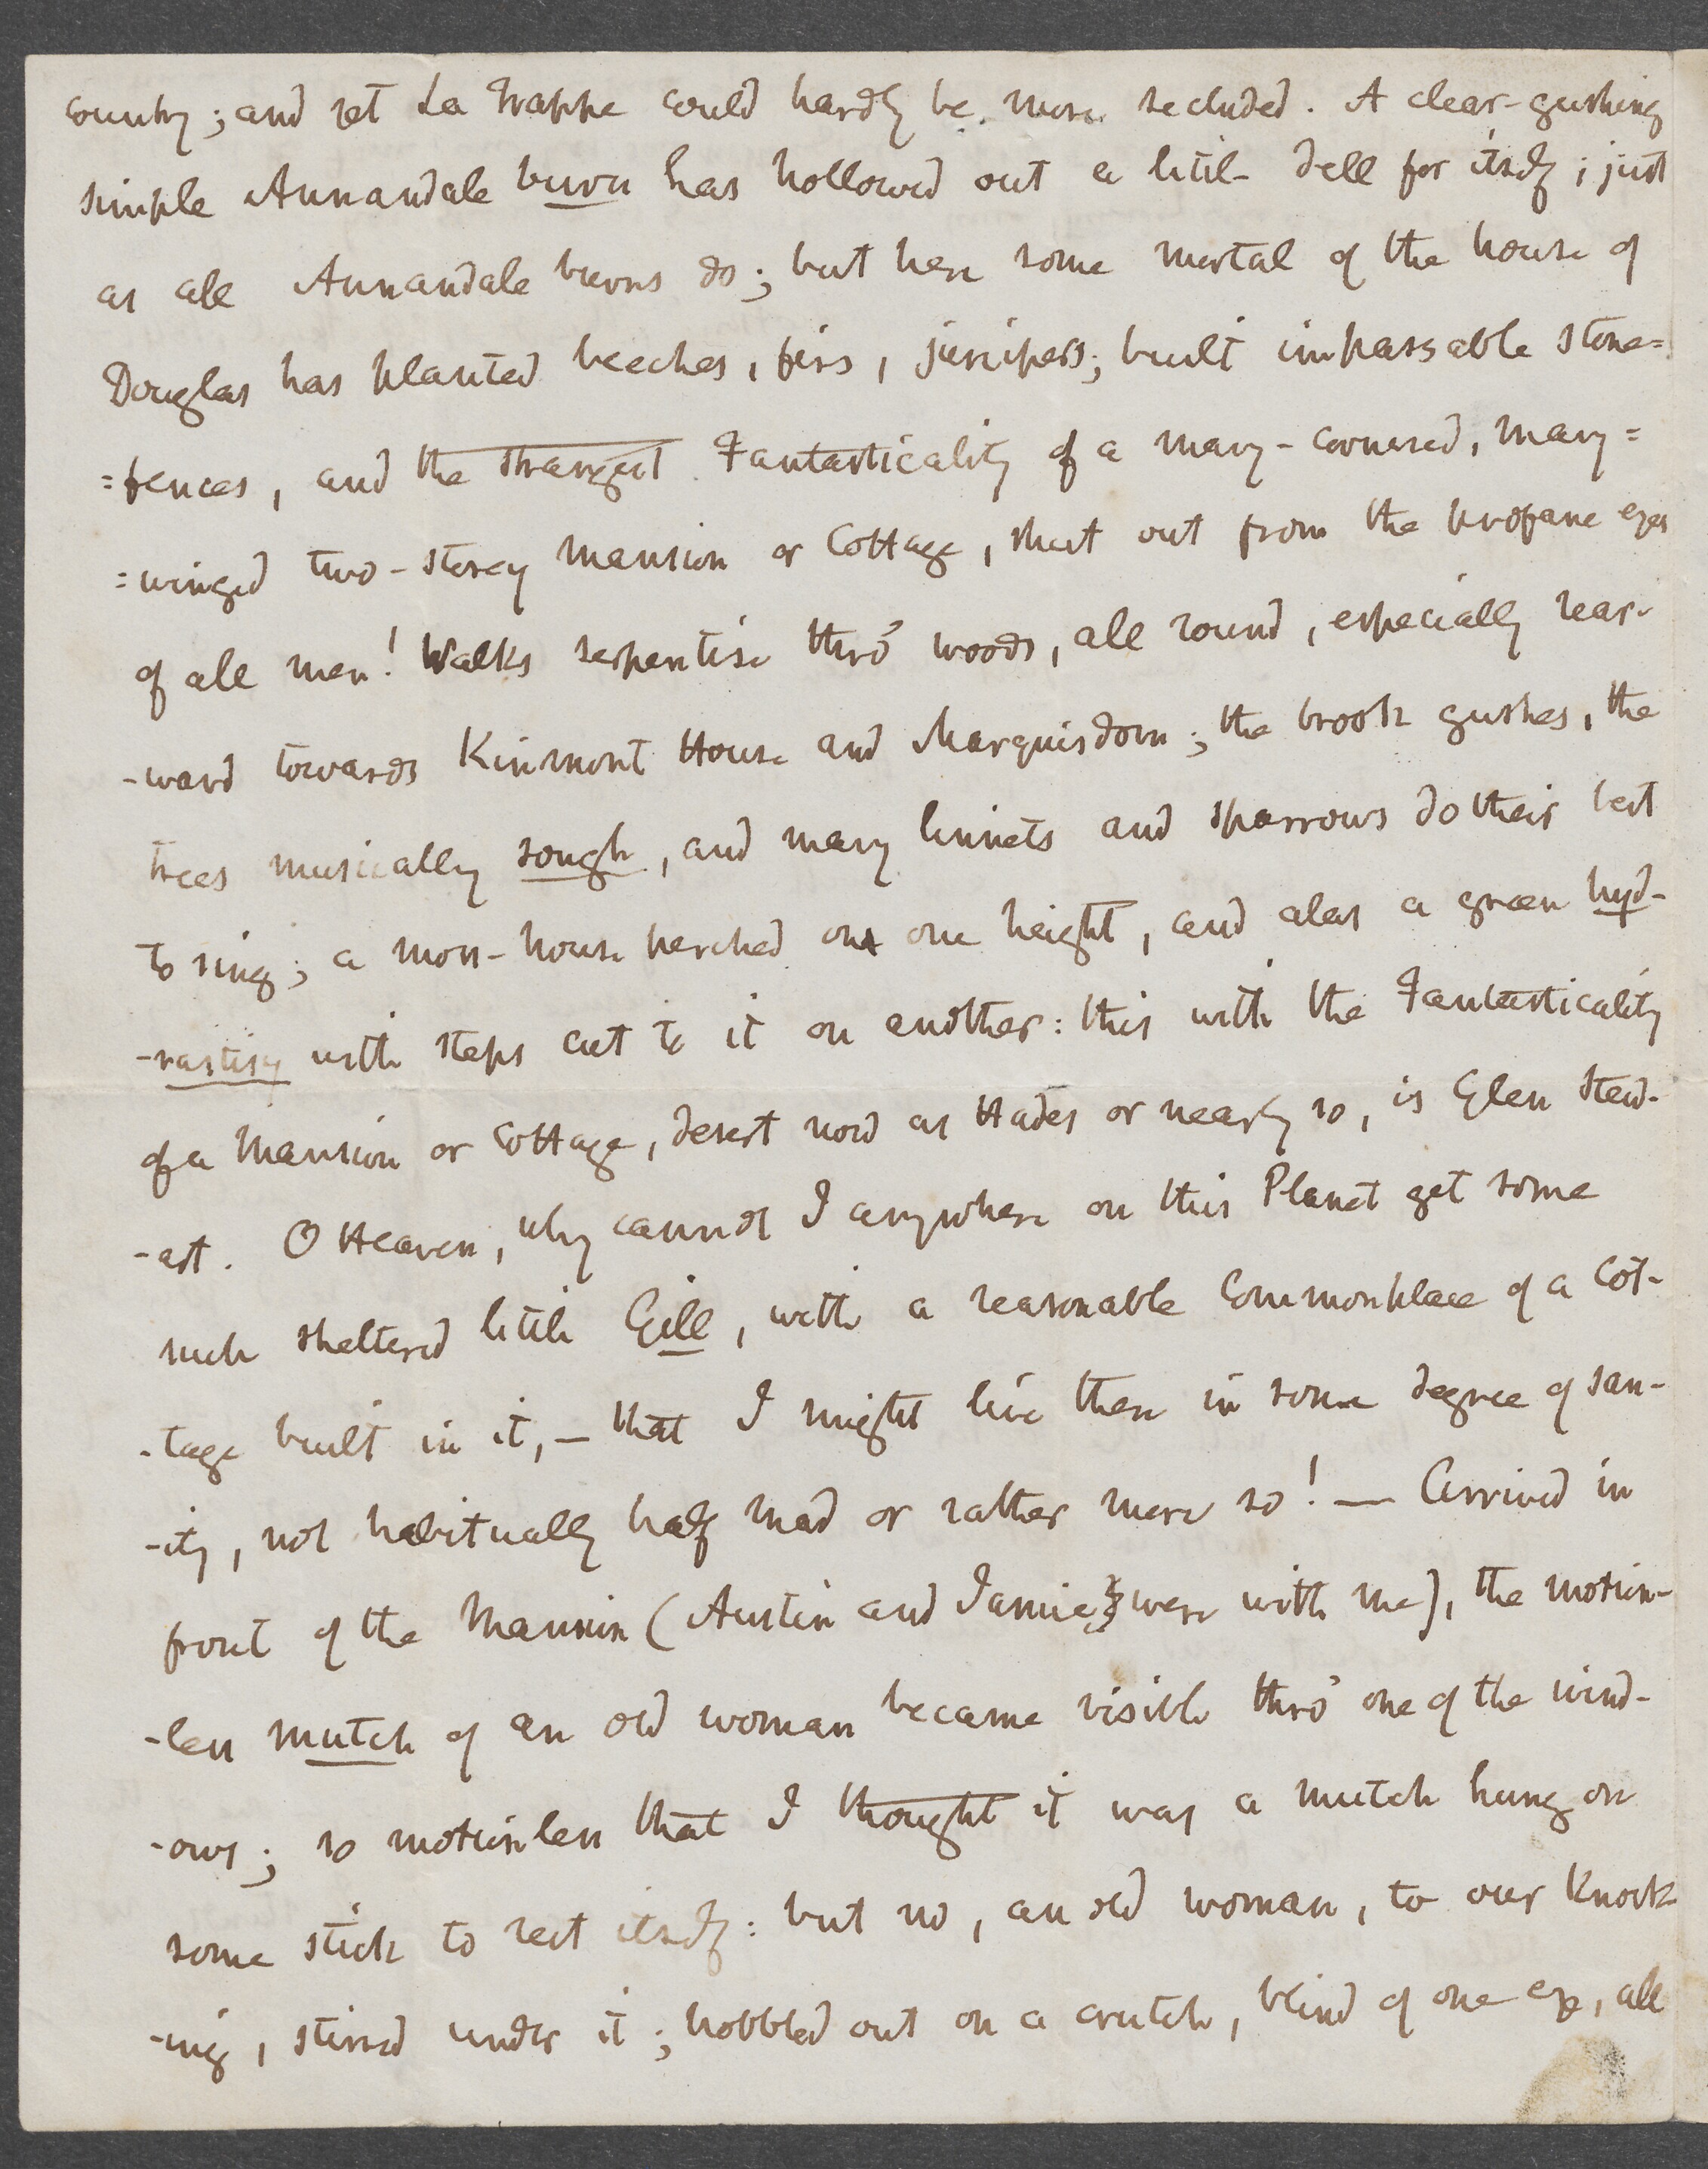 country; and yet La Trappe could hardly be more secluded. A clear-gushing
simple Annandale burn has hollowed out a little dell for itself; just
as all Annandale burns do; but here some mortal of the house of
Douglas has planted beeches, firs, junipers; built impassable stone=
=fences, and the strangest Fantasticality of a many-cornered, many=
=winged two-storey Mansion or Cottage, shut out from the profane eyes
of all men! Walks serpentise thro' woods, all round, especially rear-
-ward towards Kinmont House and Marquisdom; the brook gushes, the
trees musically sough, and many linnets and sparrows do their best
to sing; a moss-house perched on one height, and alas a green hyd-
with steps cut to it on another: this with the Fantasticality
of a Mansion or Cottage, desert now as Hades or nearly so, is Glen Stew-
-art. O Heaven, why cannot I anywhere on this Planet get some
such sheltered little Gill, with a reasonable Commonplace of a Cot-
-tage built in it, — that I might live there in some degree of san-
-ity, not habitually half mad or rather more so! — Arrived in
front of the Mansion (Austin and Jamie were with me), the motion-
-less mutch of an old woman became visible thro' one of the wind-
-ows; so motionless that I thought it was a mutch hung on
some stick to rest itself: but no, an old woman, to our knock-
-ing, stirred under it; hobbled out on a crutch, blind of one eye, all